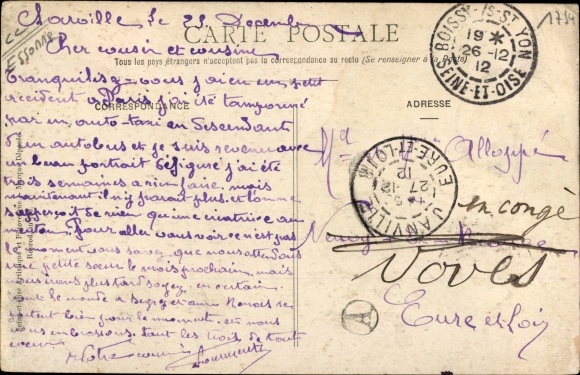 Chauville le 25 Decembre
CARTE POSTALE
Cher cousin et cousine
Tous les pays étrangers n'acceptent pas la correspondance au recto (Se renseigner à la Poste)
Tranquilisez-vous j'ai eu un petit
accident a Paris j'ai été tamponné
CORRESPONDANCE
ADRESSE
par un auto-taxi en descendant
d'un autobus et je suis revenu avec
un beau portrait défiguré j'ai été
trois semaines a rien faire mais
maintenant il n'y parait plus et l'on ne
s'apperçoit de rien qu'une cicatrice au
menton. Pour aller vous voir ce n'est pas
le moment vous savez que nous attendons
une petite sœur le mois prochain, mais
nous irons plus tard soyez en certain.
tout le monde a
portent bien pour le moment et nous
vous embrassons tout les trois de tout
cœur
Votre cousin
Essonne
1734
BOISSY-S-ST YON
19 *
26-12
12
SEINE-ET-OISE
JANVILLE
27-12
12
EURE-ET-LOIR
Alloppé
en congé
Voves
Eure et Loir
A